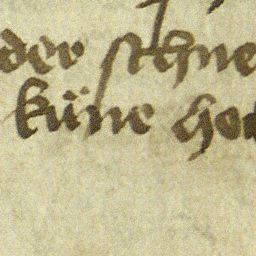 der schne
küne hoc